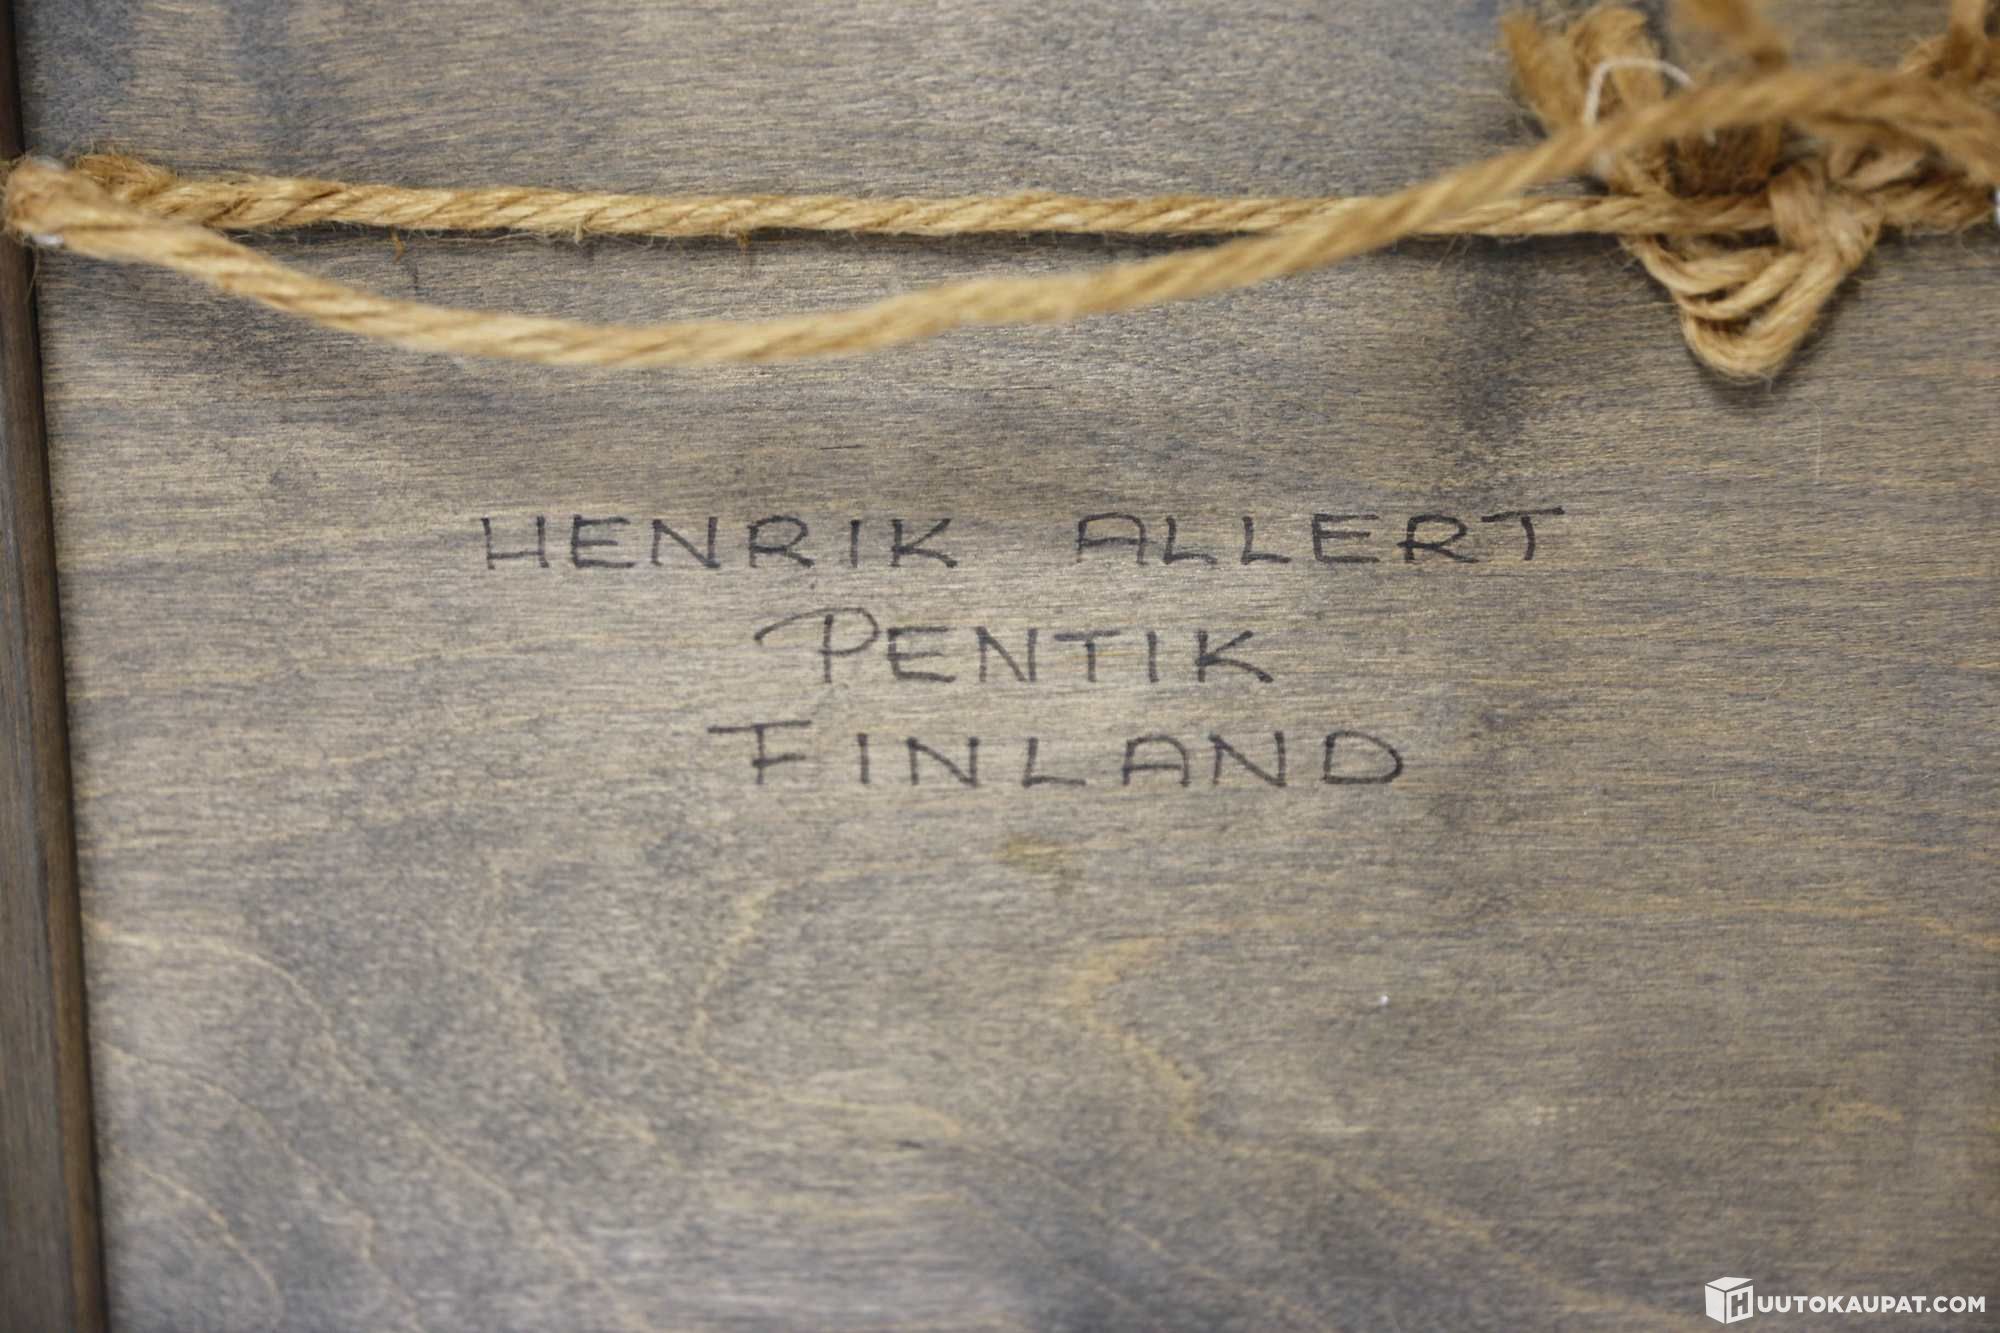 HENRIK ALLERT
PENTIK
FINLAND
HUUTOKAUPAT.COM